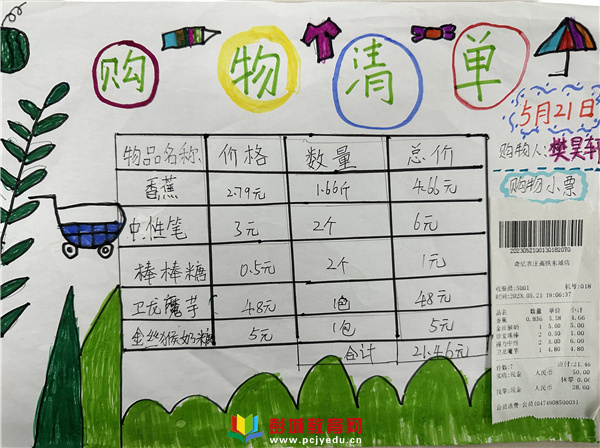 购物清单
5月21日
购物人:樊昊轩
购物小票
物品名称 价格 数量 总价
香蕉 2.79元 1.66斤 4.66元
中性笔 3元 2个 6元
棒棒糖 0.5元 2个 1元
卫龙魔芋 4.8元 1包 4.8元
金丝猴奶糖 5元 1包 5元
合计 21.46元
2023052100130182070
收银员:5001 机号:018
时间:2023.05.21 18:06:37
品名 数量 单价 小计
香蕉 0.836 5.58 4.66
1 5.00 5.00
2 0.50 1.00
2 3.00 6.00
1 4.80 4.80
件数:7 应付:21.46
实收:现金 人民币 50.00
抹零 0.06
找零:现金 人民币 28.60
会员消费-会员(0474908500003)
彭城教育网
www.pcjyedu.cn